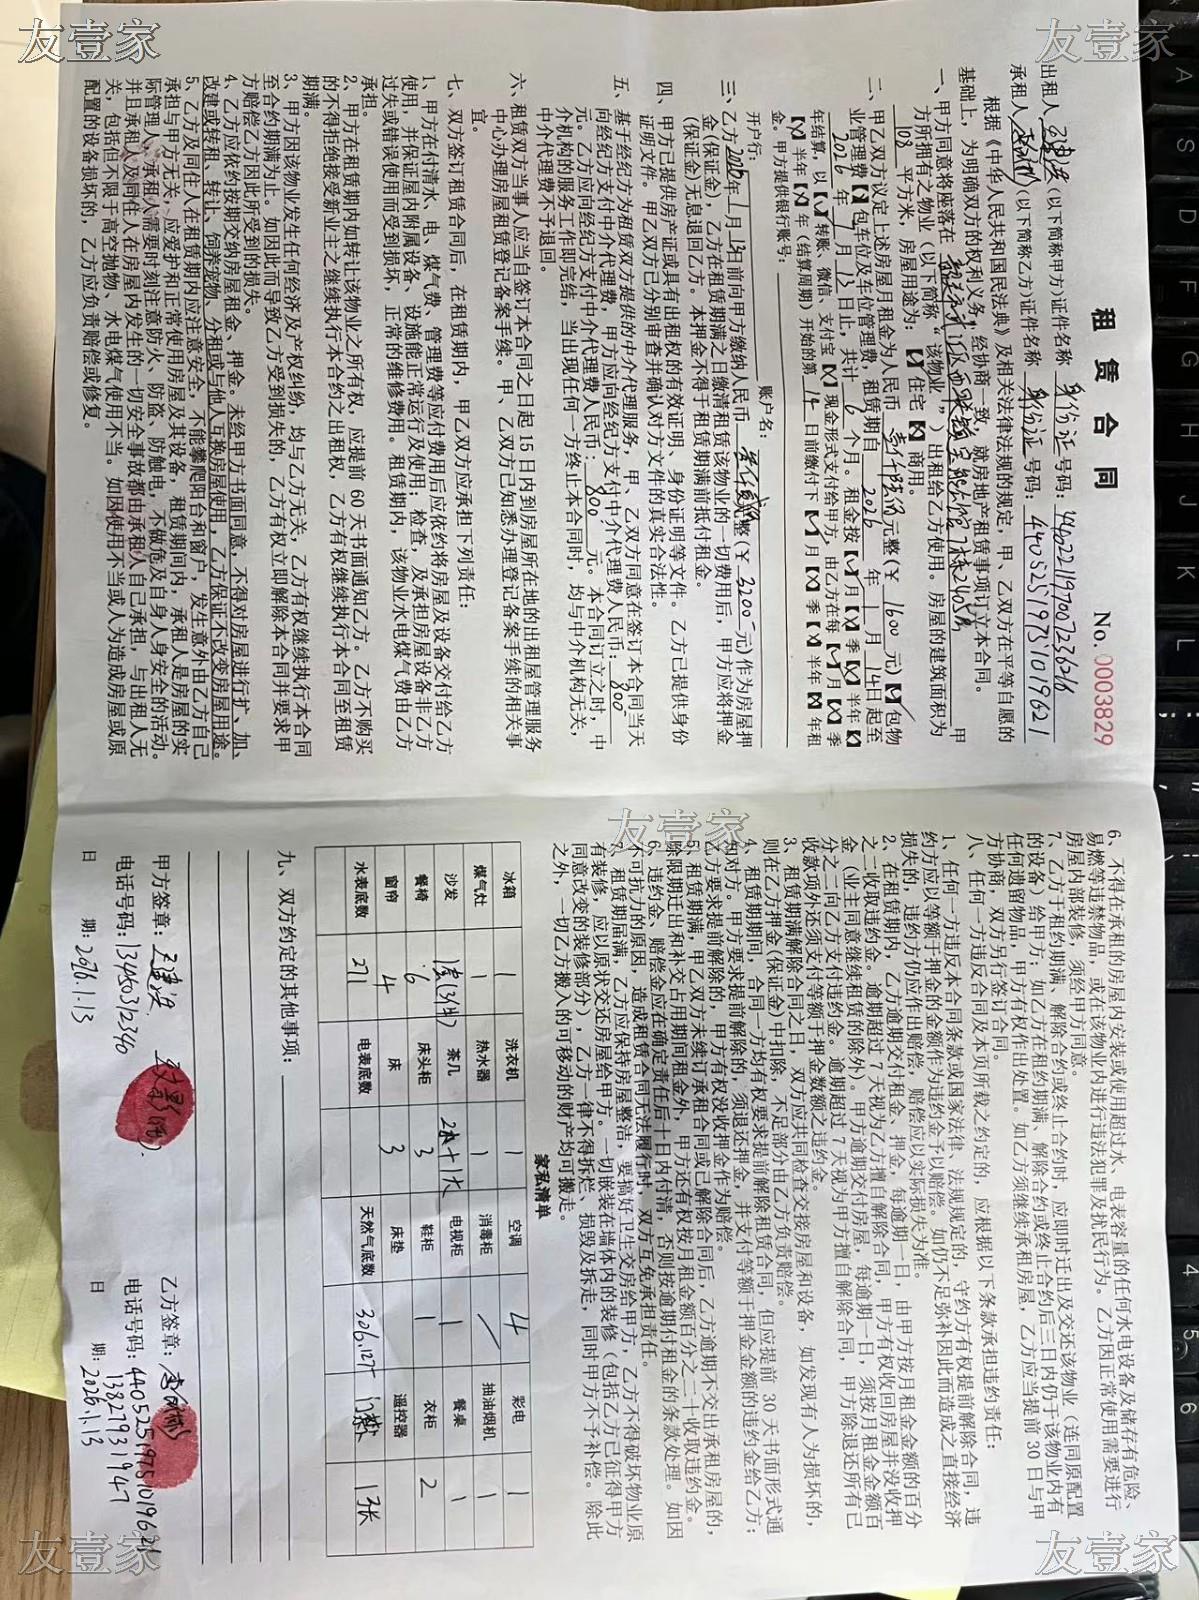 友壹家
友壹家
租 赁 合 同
No. 0003829
出租人 (以下简称甲方)证件名称 身份证 号码: 440221197007236216
承租人 (以下简称乙方)证件名称 身份证 号码: 44052519751019621
根据《中华人民共和国民法典》及相关法律法规的规定,甲、乙双方在平等自愿的
基础上,为明确双方的权利义务,经协商一致,就房地产租赁事项订立本合同。
一、甲方同意将座落在 甲
方所拥有之物业(以下简称“该物业”)出租给乙方使用。房屋的建筑面积为
108 平方米,房屋用途为:【√】住宅【×】商用。
二、甲乙双方议定上述房屋月租金为人民币 壹仟陆佰 元整(¥ 1600 元)【√】包物
业管理费【×】包车位及车位管理费,租赁期自 2026 年 1 月 14 日起至
2026 年 7 月 13 日止,共计 6 个月。租金按【√】月【×】季【×】半年【×】
年结算,以【√】转账、微信、支付宝【×】现金形式支付给甲方,由乙方在每【√】月【×】季
【×】半年【×】年(结算周期)开始的第 14 日前缴付下【√】月【×】季【×】半年【×】年租
金。甲方提供银行账号:
开户行: 账户名:
三、乙方 2026 年 1 月 13 日前向甲方缴纳人民币 叁仟贰佰 元整(¥ 3200 元)作为房屋押
金(保证金),乙方在租赁期满之日缴清租赁该物业的一切费用后,甲方应将押金
(保证金)无息退回乙方。本押金不得于租赁期满前抵付租金。
四、甲方已提供房产证或具有出租权的有效证明、身份证明等文件。乙方已提供身份
证明文件。甲乙双方已分别审查并确认对方文件的真实合法性。
五、基于经纪方为租赁双方提供的中介代理服务,甲、乙双方同意在签订本合同当天
向经纪方支付中介代理费,甲方应向经纪方支付中介代理费人民币: 800
元。乙方应向经纪方支付中介代理费人民币: 800 元。本合同订立之时,中
介机构的服务工作即完结,当出现任何一方终止本合同时,均与中介机构无关,
中介代理费不予退回。
六、租赁双方当事人应当自签订本合同之日起 15 日内到房屋所在地的出租屋管理服务
中心办理房屋租赁登记备案手续。甲、乙双方已知悉办理登记备案手续的相关事
宜。
七、双方签订租赁合同后,在租赁期内,甲乙双方应承担下列责任:
1、甲方在付清水、电、煤气费、管理费等应付费用后应依约将房屋及设备交付给乙方
使用,并保证屋内附属设备、设施能正常运行及使用;检查,及承担房屋设备非乙方
过失或错误使用而受到损坏,正常的维修费用。租赁期内,该物业水电煤气费由乙方
承担。
2、甲方在租赁期内如转让该物业之所有权,应提前 60 天书面通知乙方。乙方不购买
的不得拒绝接受新业主之继续执行本合约之出租权,乙方有权继续执行本合同至租赁
期满。
3、甲方因该物业发生任何经济及产权纠纷,均与乙方无关,乙方有权继续执行本合同
至合约期满为止。如因此而导致乙方受到损失的,乙方有权立即解除本合同并要求甲
方赔偿乙方因此所受到的损失。
4、乙方应依约按期交纳房屋租金、押金。未经甲方书面同意,不得对房屋进行扩、加、
改建或转租、转让、饲养宠物、分租或与他人互换房屋使用,乙方保证不改变房屋用途。
5、乙方及同住人在租赁期内应注意安全,不能攀爬阳台和窗户,发生意外由乙方自己
承担与甲方无关,应爱护和正常使用房屋及其设备,租赁期间内,承租人是房屋的实
际管理人,承租人需要时刻注意防火、防盗、防触电,不做危及自身人身安全的活动。
并且承租人及同住人在房屋内发生的一切安全事故都由承租人自己承担,与出租人无
关,包括但不限于高空抛物、水电煤气使用不当。如因使用不当或人为造成房屋或原
配置的设备损坏的,乙方应负责赔偿或修复。
友壹家
6、不得在承租的房屋内安装或使用超过水、电表容量的任何水电设备及储存有危险、
易燃等违禁物品,或在该物业内进行违法犯罪及扰民行为。乙方因正常使用需要进行
房屋内部装修,须经甲方同意。
7、乙方于租约期满、解除合约或终止合约时,应即时迁出及交还该物业(连同原配置
的设备)给甲方;如乙方在租约期满、解除合约或终止合约后三日内仍于该物业内有
任何遗留物品,甲方有权作出处置。如乙方须继续承租房屋,乙方应当提前 30 日与甲
方协商,双方另行签订合同。
八、任何一方违反合同及本页所载之约定的,应根据以下条款承担违约责任:
1、任何一方违反本合同条款或国家法律、法规规定的,守约方有权提前解除合同,违
约方应以等额于押金的金额作为违约金予以赔偿。如仍不足弥补因此而造成之直接经济
损失的,违约方仍应作出赔偿,赔偿应以实际损失为准。
2、在租赁期内,乙方逾期交付租金、押金,每逾期一日,由甲方按月租金金额的百分
之二收取违约金。逾期超过 7 天视为乙方擅自解除合同,甲方有权收回房屋并没收押
金(业主同意继续租赁的除外)。甲方逾期交付房屋,每逾期一日,须按月租金金额百
分之二向乙方支付违约金。逾期超过 7 天视为甲方擅自解除合同,甲方除退还所有已
收款项外还须支付等额于押金数额之违约金。
3、租赁期满解除合同之日,双方应共同检查交接房屋和设备,如发现有人为损坏的,
则在乙方押金(保证金)中扣除,不足部分由乙方负责赔偿。
4、租赁期期间,合同一方均有权要求提前解除租赁合同,但应提前 30 天书面形式通
知对方。甲方要求提前解除的,须退还押金,并支付等额于押金金额的违约金给乙方;
乙方要求提前解除的,甲方有权没收押金作为赔偿。
5、租赁期满,甲乙双方未续订承租合同或已解除合同后,乙方逾期不交出承租房屋的,
除限期迁出和补交占用期间租金外,甲方还有权按月租金额百分之二十收取违约金。
6、违约金、赔偿金应在确定责任后十日内付清,否则按逾期付租金的条款处理。如因
不可抗力的原因,造成租赁合同无法履行时,双方互免承担责任。
7、租赁期届满,乙方应保持房屋整洁,要搞好卫生交房给甲方,乙方不得破坏物业原
有装修,应以原状交还房屋给甲方。一切嵌装在墙体内的装修(包括乙方已征得甲方
同意改变的装修部分),乙方一律不得拆烂、损毁及拆走,同时甲方不予补偿。除此
之外,一切乙方搬入的可移动的财产均可搬走。
家私清单
冰箱 1 洗衣机 1 空调 4 彩电 1
煤气灶 1 热水器 1 消毒柜 / 抽油烟机 1
沙发 1套(3件) 茶几 2小+1大 电视柜 1 餐桌 1
餐椅 6 床头柜 3 鞋柜 1 衣柜 2
窗帘 4 床 3 床垫 遥控器
水表底数 271 电表底数 天然气底数 306.127 门禁 1张
九、双方约定的其他事项:
甲方签章: 乙方签章:
电话号码: 13450312340 电话号码: 44052519751019621
13827931947
日 期: 2026.1.13 日 期: 2026.1.13
友壹家
友壹家